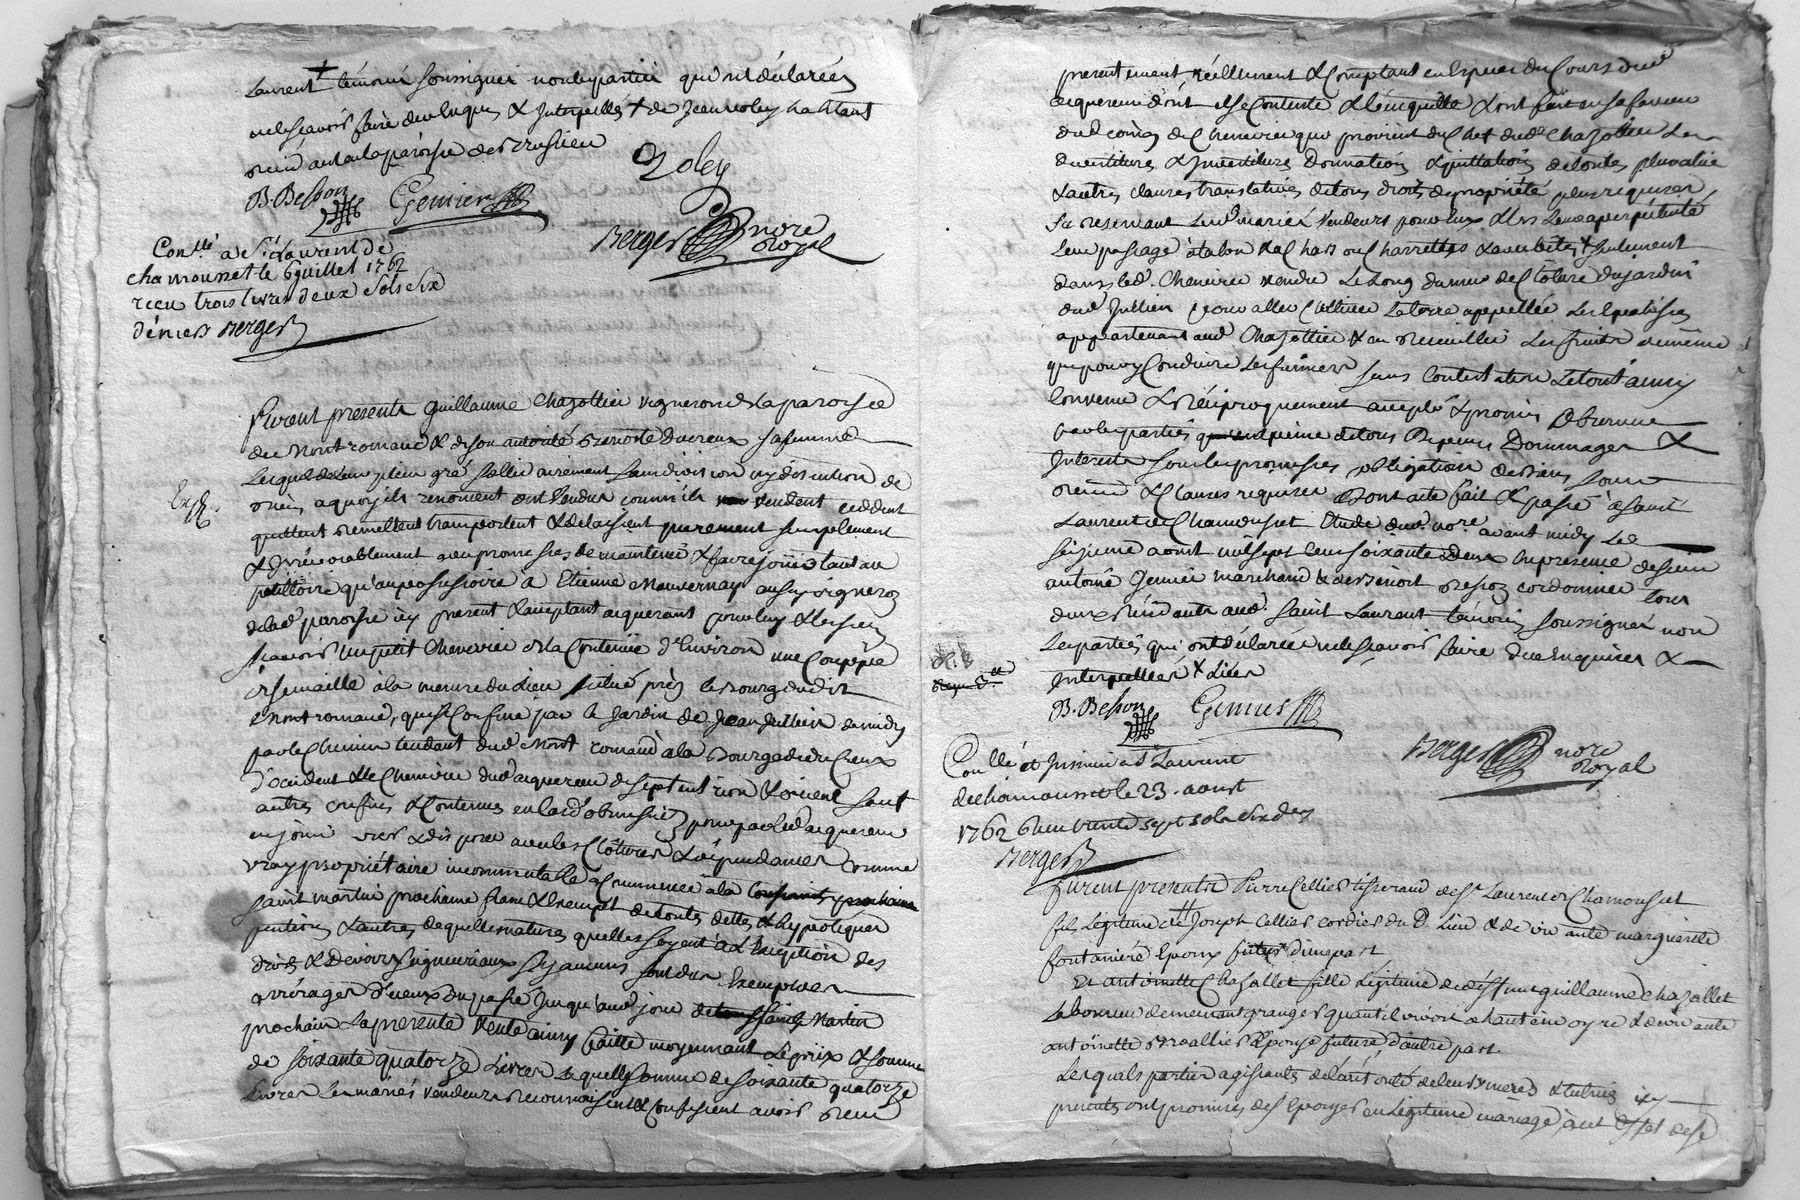 Laurent + témoins soussignez non les parties qui ont déclarées
ne le scavoir faire de ce enquis & Interpellés + de Jean coley habitant
B. Besson Genier Coley
Berger nore Royal
Conllé a St Laurent de
chamousset le 6 juillet 1762
receu trois livres deux sols six
déniers Berger
furent presents guillaume Chazottier vigneron de la paroisse
de Montromand & de son autorité benoite ducreux sa femme
Lesquels de leur plein gré
rien a quoy ils renoncent ont vendus comme ils vendent ceddent
quittent remettent transportent & delaissent purement simplement
& Irrévocablement avec promesses de maintenir & faire joüir tant au
petitoire qu'au possessoire a Etienne Mauvernay aussy vigneron
de lad. paroisse icy present & acceptant acquerant pour luy & les siens
scavoir un petit Chenevier de la Contenüe d'Environ une Coupée
semaille a la mesure du Lieu situé près le bourg dudit
Montromand, qui se Confine par le Jardin de Jean Jullien de midy
par le Chemin tendant dud. Mont romand a la
d'occident & le Chenevier dud. acquereur de septentrion & orient sauf
autres confins & Contenues
en joüir user & disposer avec les Clôtures & dépendances Comme
vray propriétaire incommutable a Commencer a la
saint martin prochaine franc & Exempt de toutes dettes & hypotèques
pentions & autres de quelles natures quelles soyent a L'Exeption des
droits & devoirs seigneuriaux sy aucuns sont dus Exempts des
arrérages d'iceux du passé Jusqu'aud. jour de Saint Martin
prochain La presente vente ainsy faitte moyennant Le prix & somme
de soixante quatorze Livres Laquelle somme de soixante quatorze
Livres Les mariés vendeurs reconnoissent & Confessent avoir receu
presentement réellement & Comptant en Especes du Cours dud.
acquereur dont ils se Contente & L'en quitte & ont fait en sa faveur
dud. Coin de Chenevier qui provient du Chef dud. Chazottier Les
devestitures & Investitures Donnation & quittation de toutes plusvalüe
& autres clauses translatives de tous droits de propriété plus requises
se reservant Lesd. mariés vendeurs pour eux & les Leurs a perpétuité
Leur passage a talon & a Chars ou Charrettes & avec bêtes seulement
dans led. Chenevier vendu Le Long du mur de Clôture du jardin
dud. Jullien pour aller Cultiver La terre appellée
appartenant aud. Chazottier & en recueillir Les fruits de même
que pour y Conduire Les fumiers sans Contestation Le tout ainsy
Convenu & réciproquement accepté & promis Observer
par les parties a peine de tous Depens Dommages &
Interets sous les promesses obligation de biens sous
& Clauses requises Dont acte fait & passé a saint
Laurent de Chamousset Etude dud. nore avant midy Le
seizieme aoust mil sept cent soixante deux En presence de sieur
antoine Genier marchand & de benoit besson cordonnier tous
deux résidants aud. Saint Laurent témoins soussignés non
Les parties qui ont déclarées ne le scavoir faire de ce Enquises &
Interpellées
B. Besson Genier
Berger nore Royal
Conllé et Insinué a St Laurent
de chamousset le 23. aoust
1762 Receu trente sept sols six ds
Berger
furent presents Pierre Cellier tisserand de St Laurent de Chamousset
fils Légitime de Joseph Cellier cordier du d. Lieu & de vivante marguerite
fontaniere Epoux futur d'une part
Et antoinette Chazallet fille Légitime de deffunt guillaume Chazallet
& de vivante
antoinette Epouse future d'autre part.
Lesquels parties agissants de l'autorité de leurs meres icy
presents ont promises de s'Epouser en Légitime mariage a cet Effet de se